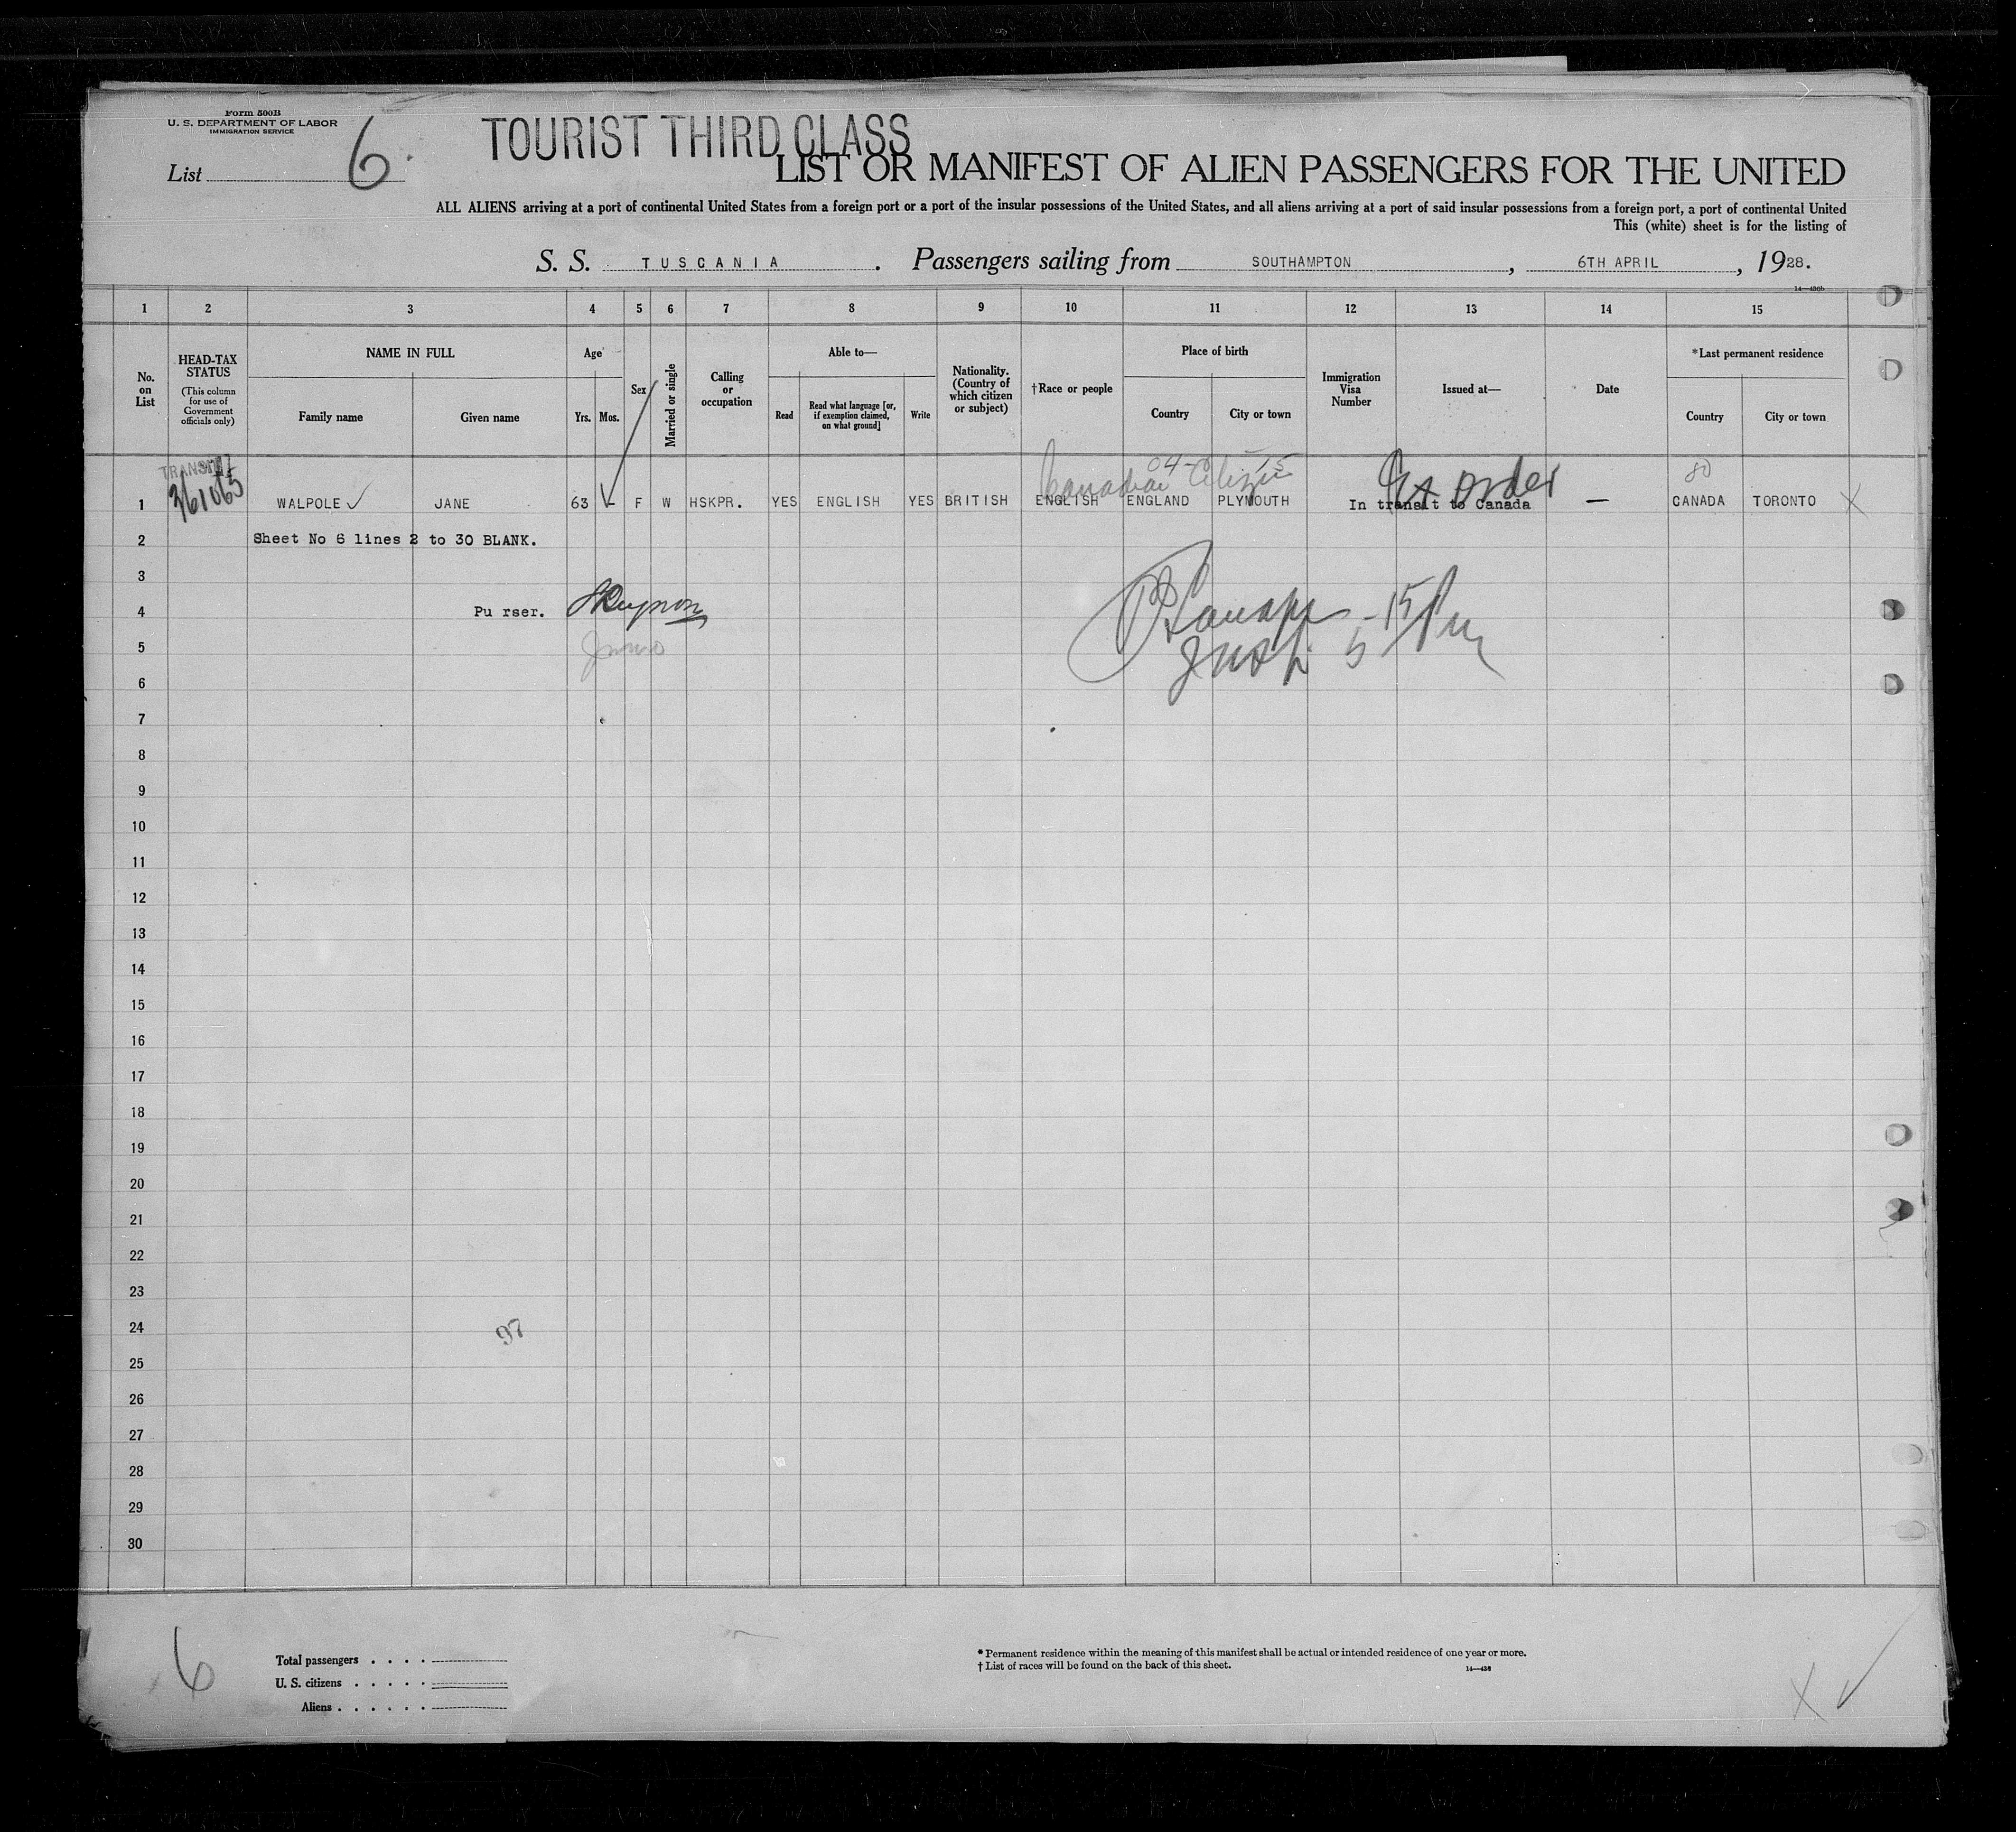 Form 500B
U. S. DEPARTMENT OF LABOR
IMMIGRATION SERVICE
List 6.
TOURIST THIRD CLASS
LIST OR MANIFEST OF ALIEN PASSENGERS FOR THE UNITED
ALL ALIENS arriving at a port of continental United States from a foreign port or a port of the insular possessions of the United States, and all aliens arriving at a port of said insular possessions from a foreign port, a port of continental United
This (white) sheet is for the listing of
S. S. TUSCANIA . Passengers sailing from SOUTHAMPTON , 6TH APRIL , 1928.
1 2 3 4 5 6 7 8 9 10 11 12 13 14 15
No. on List
HEAD-TAX STATUS (This column for use of Government officials only)
NAME IN FULL
Family name Given name
Age
Yrs. Mos.
Sex
Married or single
Calling or occupation
Able to—
Read
Read what language [or, if exemption claimed, on what ground]
Write
Nationality. (Country of which citizen or subject)
†Race or people
Place of birth
Country City or town
Immigration Visa Number
Issued at—
Date
*Last permanent residence
Country City or town
TRANSIT
04 - 15
Canadian Citizen
order
80
1 WALPOLE JANE 63 - F W HSKPR. YES ENGLISH YES BRITISH ENGLISH ENGLAND PLYMOUTH In transit to Canada — CANADA TORONTO X
2 Sheet No 6 lines 2 to 30 BLANK.
3
4 Pu rser.
5
6
7
8
9
10
11
12
13
14
15
16
17
18
19
20
21
22
23
24 97
25
26
27
28
29
30
6
Total passengers . . . .
U. S. citizens . . . . .
Aliens . . . . . .
* Permanent residence within the meaning of this manifest shall be actual or intended residence of one year or more.
† List of races will be found on the back of this sheet.
14—436
X